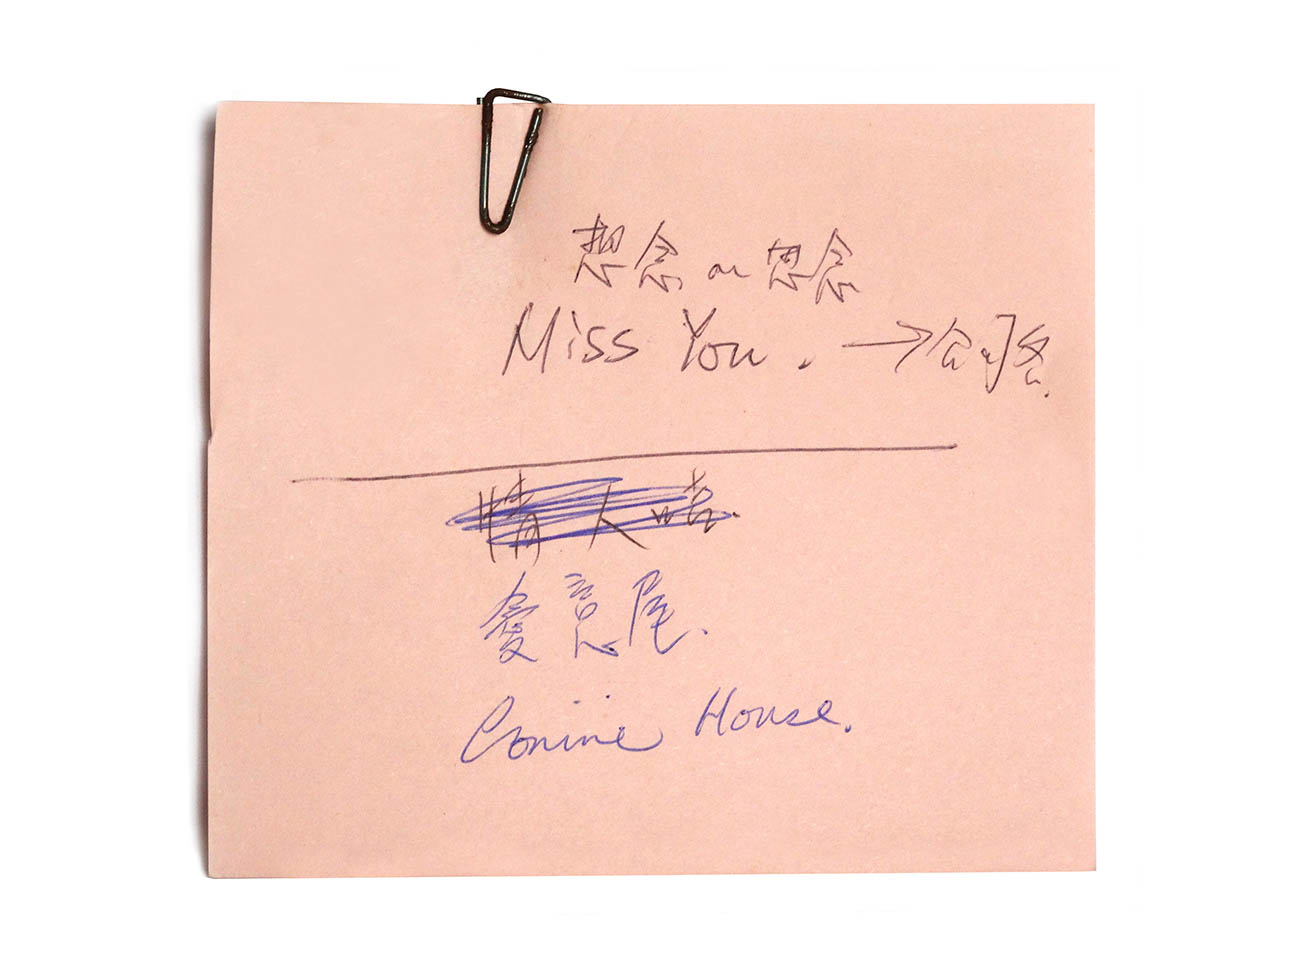 想念 or 想念
Miss You. →
情人
愛意屋.
Conine House.